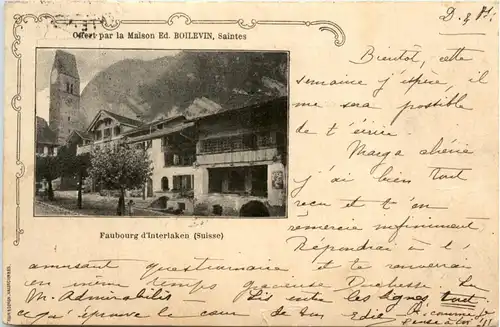 Offert par la Maison Ed. BOILEVIN, Saintes
Bientôt, cette
semaine j'espère, il
me sera possible
de t'écrire
Marga chérie
j'ai bien tout
reçu et t'en
remercie infiniment
Répondrai à t'
Faubourg d'Interlaken (Suisse)
amusant questionnaire et te renverrai
en même temps gracieuse Duchesse. Lu
M. Admirabilis Lis entre les lignes, tout
ce qu' éprouve le cœur de ton Edie